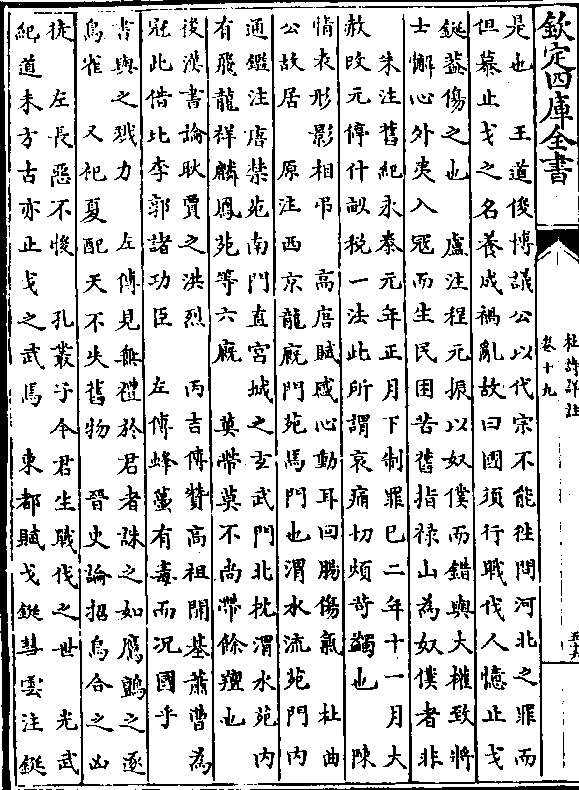 欽定四庫全書
杜詩詳註
卷十九
是也　王道俊博議公以代宗不能往問河北之罪而
但慕止戈之名養成禍亂故曰國須行戰伐人憶止戈
鋋葢傷之也　盧注程元振以奴僕而錯與大權致將
士懈心外夷入冦而生民困苦舊指禄山為奴僕者非
朱注舊紀永泰元年正月下制罪已二年十一月大
赦改元停什畝税一法此所謂哀痛切煩苛蠲也　陳
情表形影相弔　高唐賦感心動耳回腸傷氣　杜曲
公故居　原注西京龍廐門苑馬門也渭水流苑門内
通鑑注唐禁苑南門直宮城之玄武門北枕渭水苑内
有飛龍祥麟鳳苑等六廐　莫帶莫不尚帶餘羶也
後漢書論耿賈之洪烈　丙吉傳贊高祖開基蕭曹為
冠此借比李郭諸功臣　左傳蜂蠆有毒而况國乎
書與之戮力　左傳見無禮於君者誅之如鷹鸇之逐
鳥雀　又祀夏配天不失舊物　晉史論招烏合之凶
徒　左長惡不悛　孔叢子今君生戰伐之世　光武
紀道未方古亦止戈之武焉　東都賦戈鋋彗雲注鋋